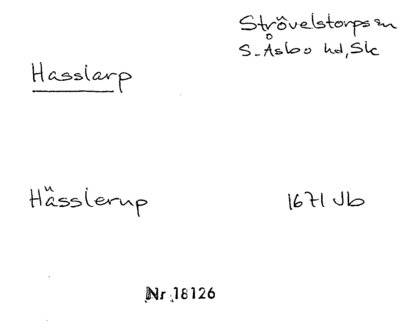 Strövelstorps sn
S. Åsbo hd, Sk
Hasslarp
Hässlerup 1671 Jb
Nr 18126